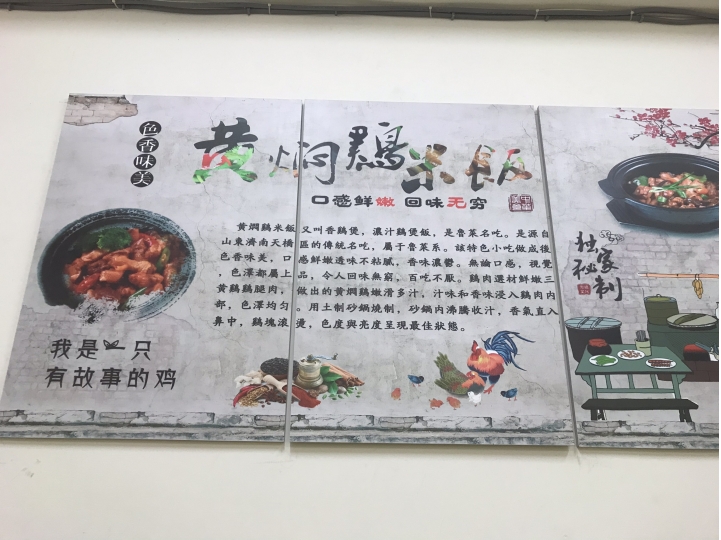 色香味美
黄焖鷄米飯
口感鲜嫩 回味无穷
黄燜鷄米飯又叫香鷄煲，濃汁鷄煲飯，是魯菜名吃。是源自
山東濟南天橋區的傳統名吃，屬于魯菜系。該特色小吃做成後
色香味美，口感鮮嫩透味不粘膩，香味濃鬱。無論口感，視覺
，色澤都屬上品，令人回味無窮，百吃不厭。鷄肉選材鮮嫩三
黄鷄鷄腿肉，做出的黄燜鷄嫩滑多汁，汁味和香味浸入鷄肉内
部，色澤均匀。用土制砂鍋燒制，砂鍋内沸騰收汁，香氣直入
鼻中，鷄塊滚燙，色度與亮度呈現最佳狀態。
我是一只
有故事的鸡
独家
秘制